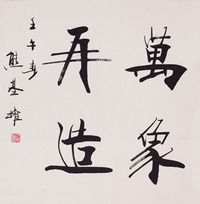 萬象
再造
壬午春
熊基權